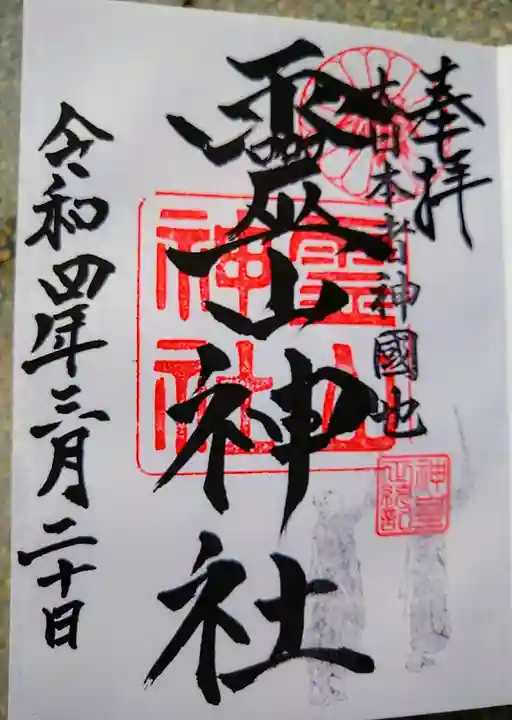 奉拝
大日本者神國也
靈山神社
令和四年三月二十日
靈山
神社